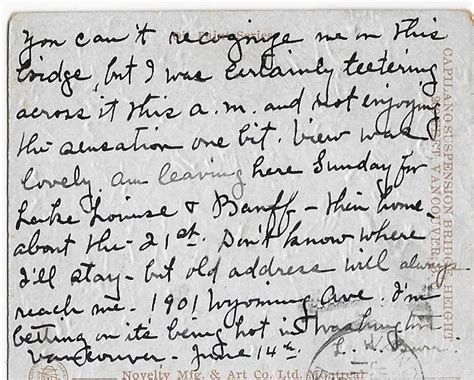 You can't recognize me on this
bridge, but I was certainly teetering
across it this a.m. and not enjoying
the sensation one bit. View was
lovely. am leaving here Sunday for
Lake Louise & Banff - then home -
about the 21st. Don't know where
I'll stay - but old address will always
reach me - 1901 Wyoming Ave. I'm
betting on its being hot in Washington
Vancouver - June 14th. L. K.
Series
CAPILANO SUSPENSION BRIDGE, HEIGHT
VANCOUVER,
Novelty Mfg. & Art Co. Ltd. Montreal